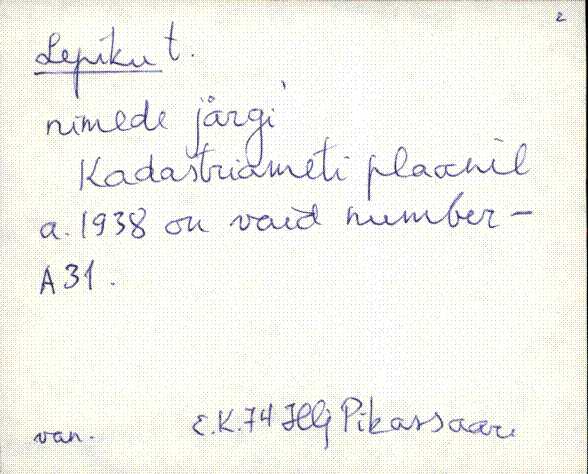 2
Lepiku t.
nimede järgi
Kadastriameti plaanil
a. 1938 on vaid number –
A 31.
van. E.K.74 Hlj Pikassaar.